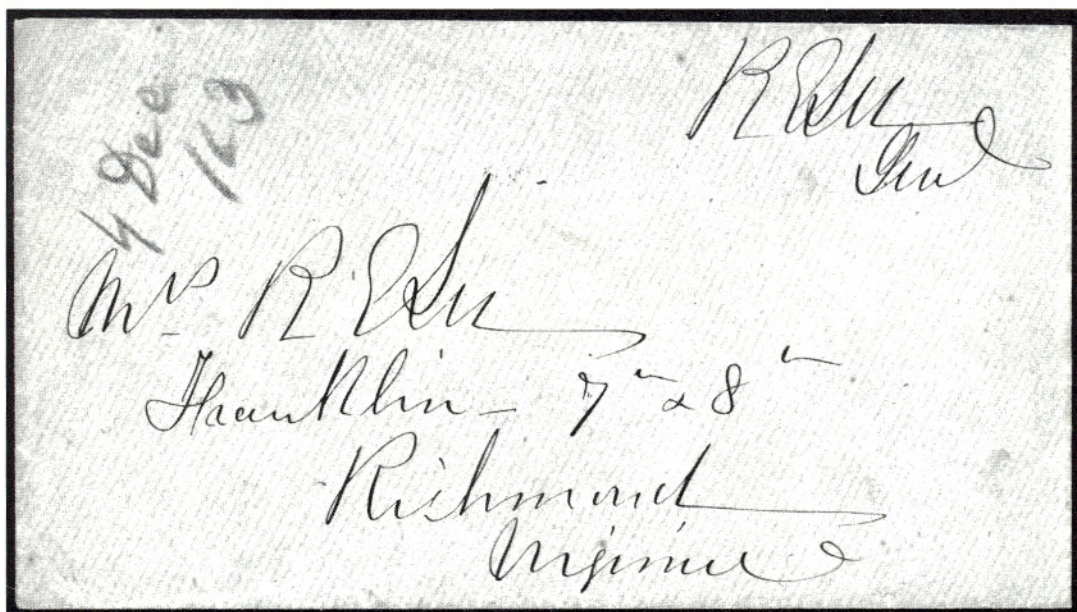 4 Dec
163
R E Lee
Genl
Mrs R. E Lee
Franklin - 7th & 8th
Richmond
Virginia